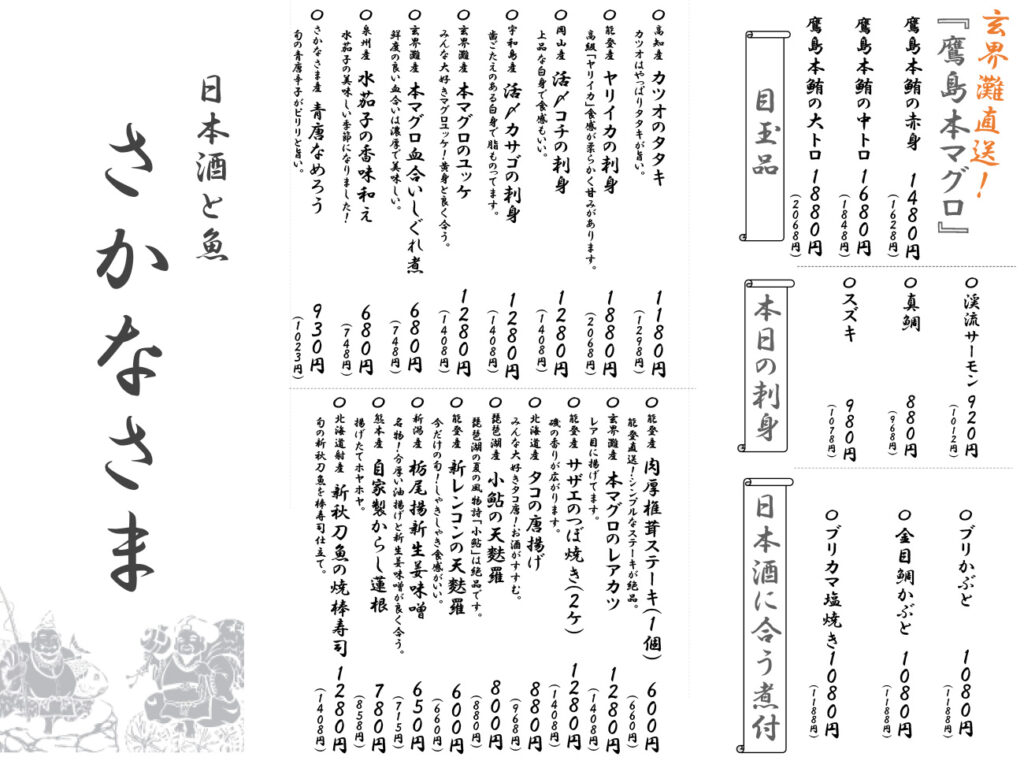 玄界灘直送！
『鷹島本マグロ』
鷹島本鮪の赤身 1480円
(1628円)
鷹島本鮪の中トロ 1680円
(1848円)
鷹島本鮪の大トロ 1880円
(2068円)
目玉品
○渓流サーモン 920円
(1012円)
○真鯛 880円
(968円)
○スズキ 980円
(1078円)
本日の刺身
○ブリかぶと 1080円
(1188円)
○金目鯛かぶと 1080円
(1188円)
○ブリカマ塩焼き 1080円
(1188円)
日本酒に合う煮付
○高知産 カツオのタタキ 1180円
カツオはやっぱりタタキが旨い。 (1298円)
○能登産 ヤリイカの刺身 1880円
高級「ヤリイカ」食感が柔らかく甘みがあります。 (2068円)
○岡山産 活〆コチの刺身 1280円
上品な白身で食感もいい。 (1408円)
○宇和島産 活〆カサゴの刺身 1280円
歯ごたえのある白身で脂ものってます。 (1408円)
○玄界灘産 本マグロのユッケ 1280円
みんな大好きマグロユッケ！黄身と良く合う。 (1408円)
○玄界灘産 本マグロ血合いしぐれ煮 680円
鮮度の良い血合いは濃厚で美味しい。 (748円)
○泉州産 水茄子の香味和え 680円
水茄子の美味しい季節になりました！ (748円)
○さかなさま産 青唐なめろう 930円
旬の青唐辛子がピリリと旨い。 (1023円)
○能登産 肉厚椎茸ステーキ(1個) 600円
能登直送！シンプルなステーキが絶品。 (660円)
○玄界灘産 本マグロのレアカツ 1280円
レア目に揚げてます。 (1408円)
○能登産 サザエのつぼ焼き(2ケ) 1280円
磯の香りが広がります。 (1408円)
○北海道産 タコの唐揚げ 880円
みんな大好きタコ唐！お酒がすすむ。 (968円)
○琵琶湖産 小鮎の天麩羅 800円
琵琶湖の夏の風物詩「小鮎」は絶品です。 (880円)
○能登産 新レンコンの天麩羅 600円
今だけの旬！しゃきしゃき食感がいい。 (660円)
○新潟産 栃尾揚新生姜味噌 650円
名物！分厚い油揚げと新生姜味噌が良く合う。 (715円)
○熊本産 自家製からし蓮根 780円
揚げたてホヤホヤ。 (858円)
○北海道射産 新秋刀魚の焼棒寿司 1280円
旬の新秋刀魚を棒寿司仕立て。 (1408円)
日本酒と魚
さかなさま